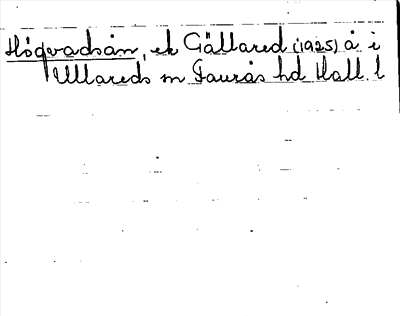 Högvadsån, ek Gällared (1925) å i
Ullareds m Faurås hd Hall. l